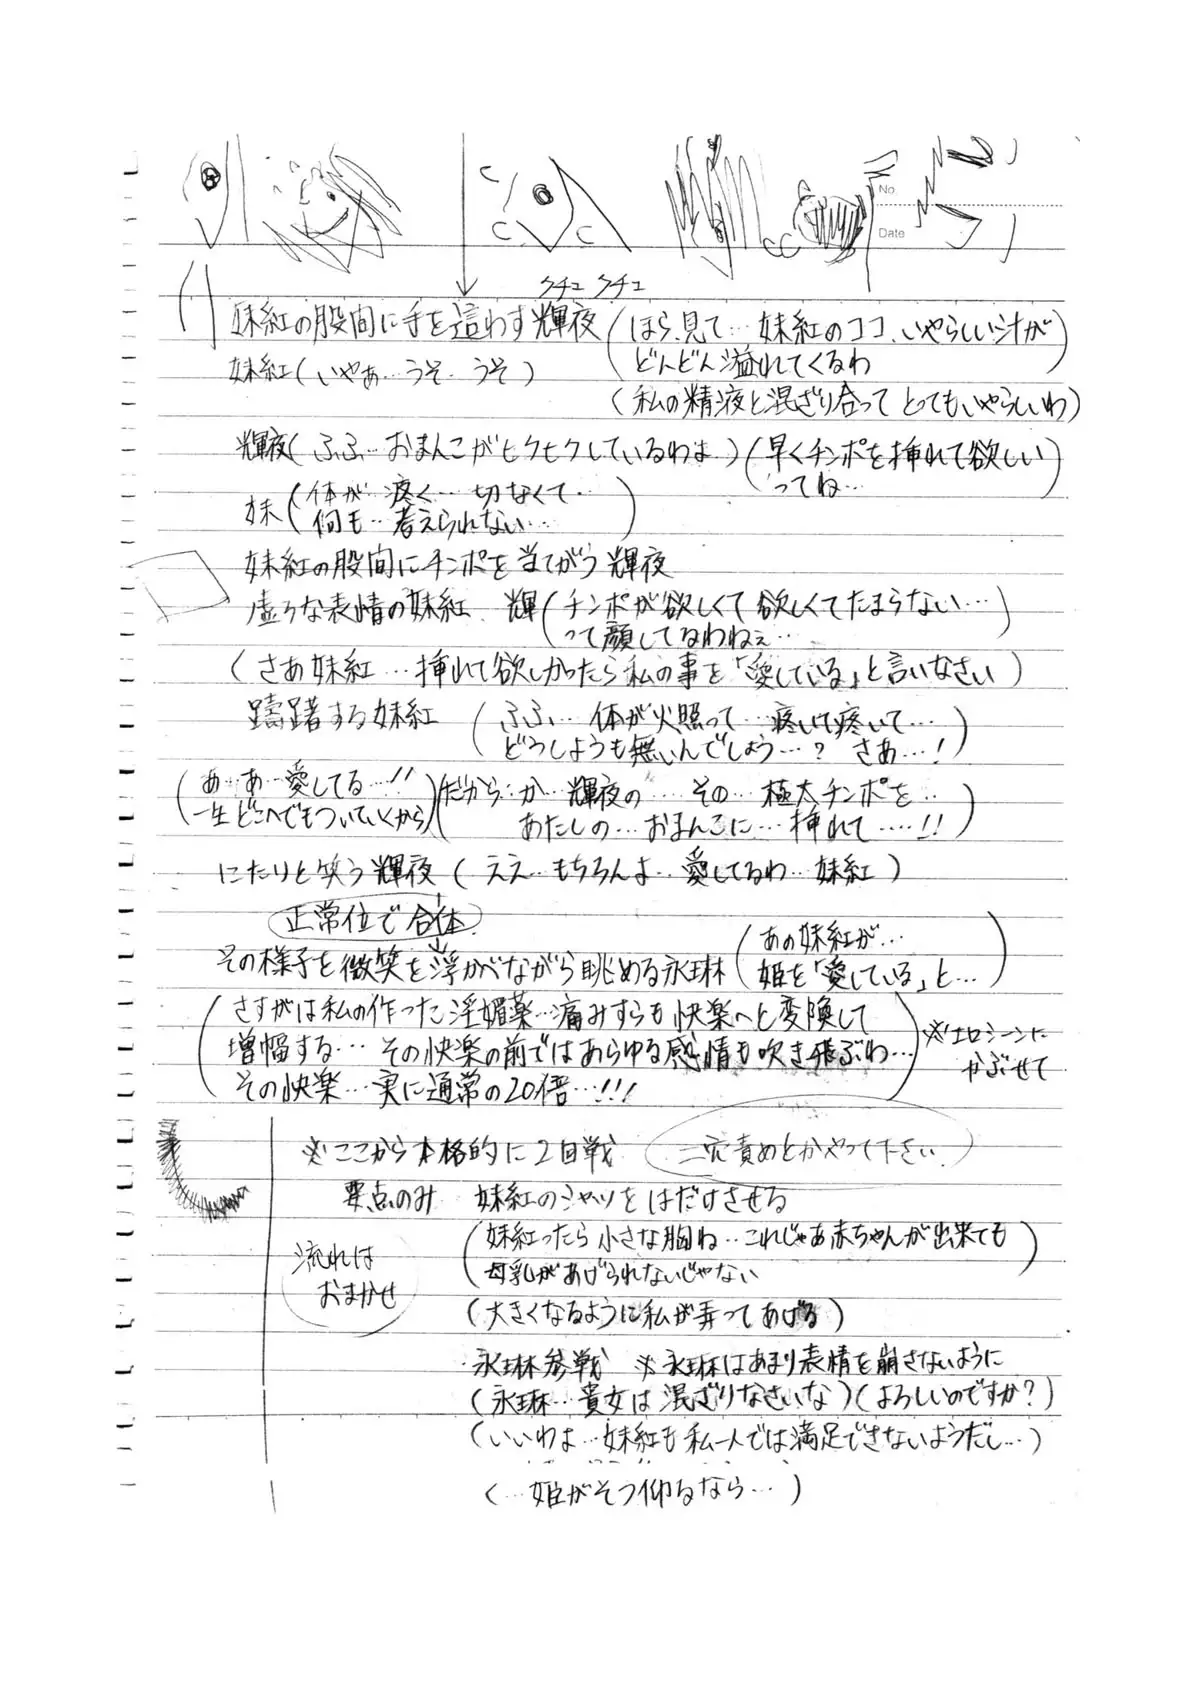 No.
Date
クチュ クチュ
妹紅の股間に手を這わす輝夜 (ほら、見て…妹紅のココ、いやらしい汁が
どんどん溢れてくるわ)
妹紅(いやぁ…うそ‥うそ)
(私の精液と混ざり合ってとってもいやらしいわ)
輝夜(ふふ…おまんこがヒクヒクしているわよ)(早くチンポを挿れて欲しい
ってね…)
妹(体が…疼く…切なくて‥
何も‥考えられない…)
妹紅の股間にチンポを当てがう輝夜
虚ろな表情の妹紅 輝(チンポが欲しくて欲しくてたまらない…
って顔してるわねぇ…)
(さあ妹紅…挿れて欲しかったら私の事を「愛している」と言いなさい)
躊躇する妹紅 (ふふ…体が火照って…疼いて疼いて…
どうしようも無いんでしょう…? さあ…!)
(あ…あ…愛してる…!!
一生どこへでもついていくから)(だから…か…輝夜の……その…極太チンポを‥
あたしの…おまんこに…挿れて……!!)
にたりと笑う輝夜 (ええ…もちろんよ…愛してるわ…妹紅)
正常位で合体
その様子を微笑を浮かべながら眺める永琳 (あの妹紅が…
姫を「愛している」と…)
(さすがは私の作った淫媚薬…痛みすらも快楽へと変換して
増幅する…その快楽の前ではあらゆる感情も吹き飛ぶわ…
その快楽…実に通常の20倍…!!!)
※エロシーンに
かぶせて
※ここから本格的に2回戦 二穴責めとかやって下さい
要点のみ 妹紅のシャツをはだけさせる
(妹紅ったら小さな胸ね…これじゃあ赤ちゃんが出来ても
母乳があげられないじゃない)
流れは
おまかせ
(大きくなるように私が弄ってあげる)
永琳参戦 ※永琳はあまり表情を崩さないように
(永琳…貴女は混ざりなさいな)(よろしいのですか?)
(いいわよ…妹紅も私一人では満足できないようだし…)
(…姫がそう仰るなら…)